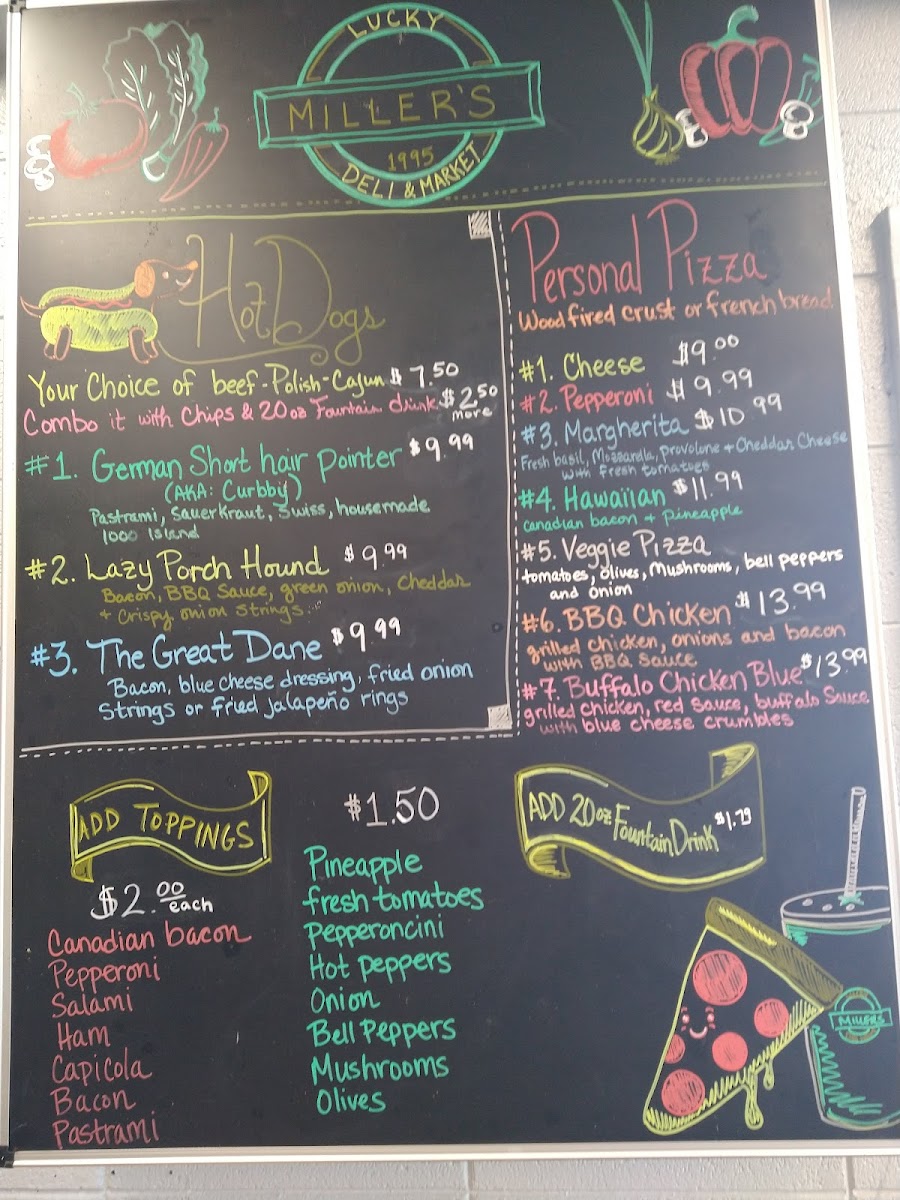 LUCKY
MILLER'S
1995
DELI & MARKET
Hot Dogs
Your Choice of beef-Polish-Cajun $7.50
Combo it with Chips & 20oz Fountain drink $2.50 more
#1. German Short hair pointer $9.99
(AKA: Curbby)
Pastrami, Sauerkraut, Swiss, housemade
1000 Island
#2. Lazy Porch Hound $9.99
Bacon, BBQ Sauce, green onion, Cheddar
+ Crispy onion strings
#3. The Great Dane $9.99
Bacon, blue cheese dressing, fried onion
Strings or fried jalapeño rings
Personal Pizza
Wood fired crust or french bread
#1. Cheese $9.00
#2. Pepperoni $9.99
#3. Margherita $10.99
Fresh basil, Mozzarella, provolone + Cheddar Cheese
with fresh tomatoes
#4. Hawaiian $11.99
Canadian bacon + Pineapple
#5. Veggie Pizza
tomatoes, olives, Mushrooms, bell peppers
and onion
#6. BBQ Chicken $13.99
grilled chicken, onions and bacon
with BBQ Sauce
#7. Buffalo Chicken Blue $13.99
grilled chicken, red sauce, buffalo Sauce
with blue cheese crumbles
ADD TOPPINGS
$2.00 each
Canadian bacon
Pepperoni
Salami
Ham
Capicola
Bacon
Pastrami
$1.50
Pineapple
fresh tomatoes
Pepperoncini
Hot peppers
Onion
Bell Peppers
Mushrooms
Olives
ADD 20oz Fountain Drink $1.79
MILLER'S